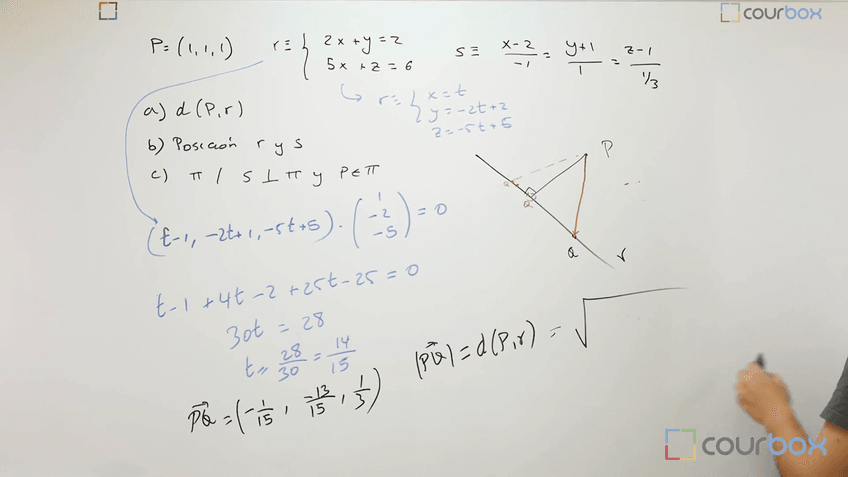 courbox
P=(1,1,1)
r≡ { 2x+y=2
5x+z=6
s≡ x-2/-1 = y+1/1 = z-1/1/3
r≡ { x=t
y=-2t+2
z=-5t+5
a) d(P,r)
b) Posición r y s
c) π / s⊥π y P∈π
(t-1, -2t+1, -5t+5)·(1 -2 -5)=0
t-1+4t-2+25t-25=0
30t=28
t=28/30=14/15
PQ=(-1/15, -13/15, 1/3)
|PQ|=d(P,r)=√
P
Q
Q
Q
r
courbox